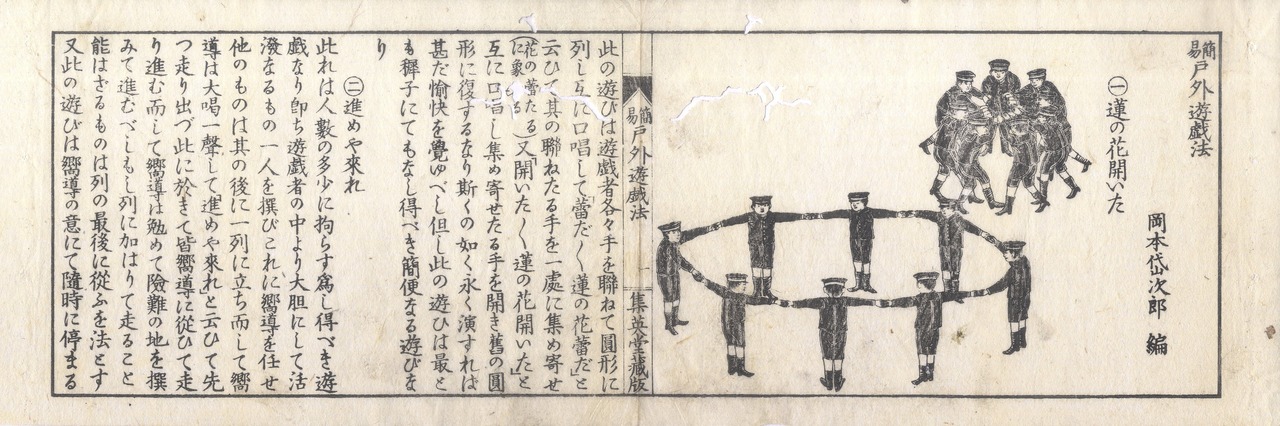 簡易戸外遊戯法
岡本岱次郎 編
㊀蓮の花開いた
簡易戸外遊戯法 一 集英堂藏版
此の遊びは遊戯者各々手を聯ねて圓形に
列し互に口唱して「蕾だ〱蓮の花蕾だ」と
云ひて其の聯ねたる手を一處に集め寄せ
(花の蕾たるに象る)又「開いた〱蓮の花開いた」と
互に口唱し集め寄せたる手を開き舊の圓
形に復するなり斯くの如く永く演すれは
甚だ愉快を覺ゆべし但し此の遊ひは最と
も穉子にてもなし得べき簡便なる遊びな
り
㊁進めや來れ
此れは人數の多少に拘らす爲し得べき遊
戯なり卽ち遊戯者の中より大胆にして活
潑なるもの一人を撰びこれに嚮導を任せ
他のものは其の後に一列に立ち而して嚮
導は大唱一聲して進めや來れと云ひて先
つ走り出づ此に於きて皆嚮導に從ひて走
り進む而して嚮導は勉めて險難の地を撰
みて進むべしもし列に加はりて走ること
能はさるものは列の最後に從ふを法とす
又此の遊びは嚮導の意にて隨時に停まる